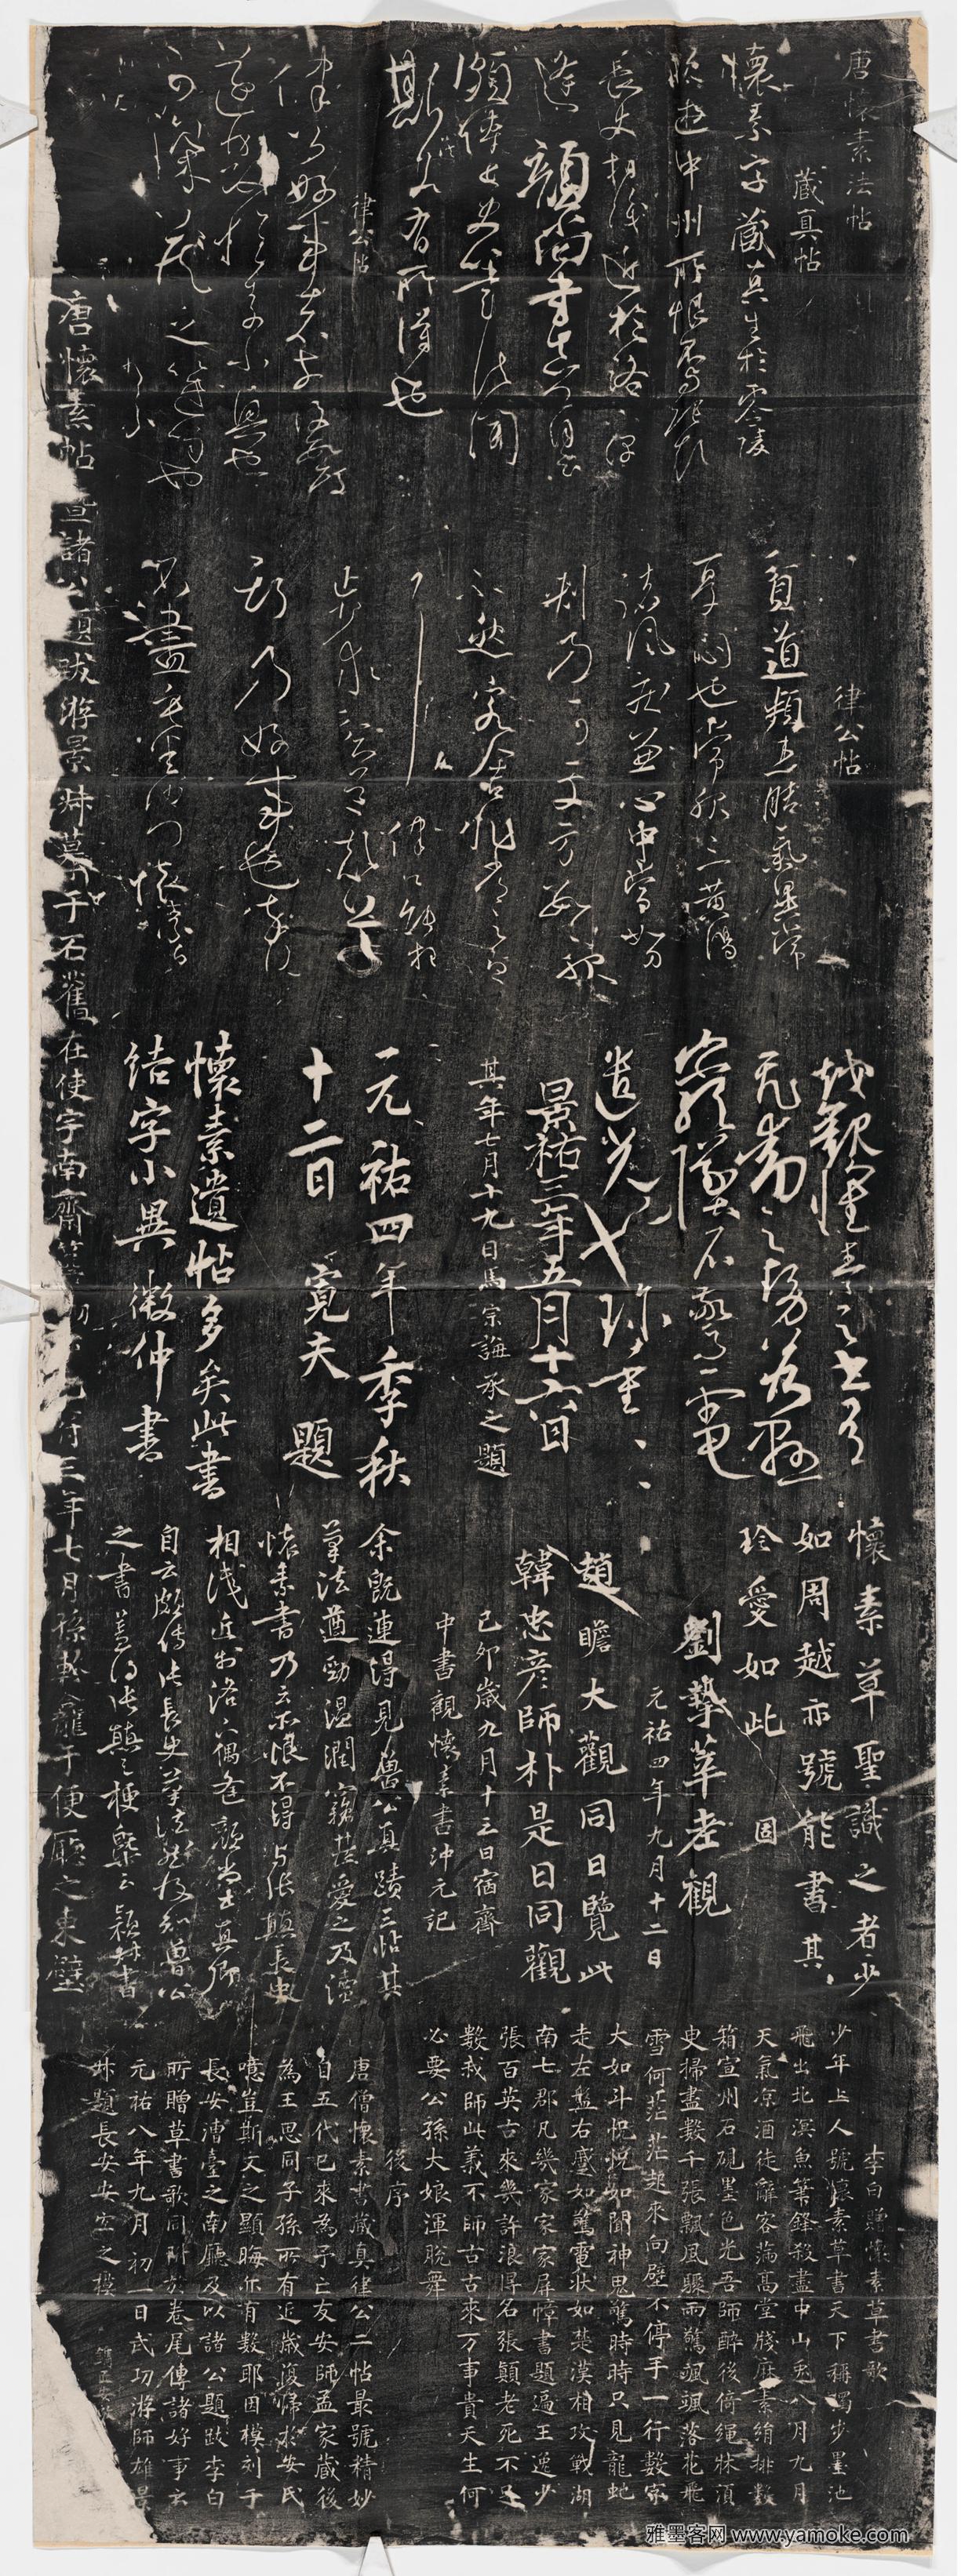 唐懷素法帖
藏真帖
懷素字藏真生於零陵
晚遊中州所恨不與張顛
長史相識近於洛下偶
逢顏尚書真卿自云
頗傳長史筆法聞
斯八法若有所得也
律公帖
律公好事者
小興也
可深藏之
律公帖
貧道頻患腳氣異常
憂悶也常服三黃湯
諸風疾兼心中常如
刺乃可處方數服
不然客舍非常之憂耳
律公能枉
步求貧道起草
斯乃好事也卒復
不盡垂悉沙門懷素白
越觀懷素之書有
飛動之勢若懸
巖墜石驚電
遺光也珍重
景祐三年五月十六日
其年七月十九日馬宗誨承之題
元祐四年季秋
十二日寬夫題
懷素遺帖多矣此書
結字小異微仲書
懷素草聖識之者少
如周越亦號能書其
珍愛如此固
劉摯莘老觀
元祐四年九月十二日
趙瞻大觀同日覽此
韓忠彥師朴是日同觀
己卯歲九月十三日宿齋
中書觀懷素書沖元記
余既連得見魯公真蹟三帖其
草法遒勁溫潤竊甚愛之及讀
懷素書乃云所恨不得與張顛長史
相識近於洛下偶逢顏尚書真卿
自云頗傳張長史筆法然後知魯公
之書蓋得張顛之梗槩云穎叔書
李白贈懷素草書歌
少年上人號懷素草書天下稱獨步墨池
飛出北溟魚筆鋒殺盡中山兎八月九月
天氣凉酒徒辭客滿高堂牋麻素絹排數
箱宣州石硯墨色光吾師醉後倚繩牀須
史掃盡數千張飄風驟雨驚颯颯落花飛
雪何茫茫起來向壁不停手一行數字
大如斗怳怳如聞神鬼驚時時只見龍虵
走左盤右蹙如驚電狀如楚漢相攻戰湖
南七郡凡幾家家家屏幛書題遍王逸少
張百英古來幾許浪得名張顛老死不足
數我師此義不師古古來万事貴天生何
必要公孫大娘渾脫舞
後序
唐僧懷素書藏真律公二帖最號精妙
自五代已來為予亡友安師孟家藏後
為王思同子孫所有近歲復歸於安氏
噫豈斯文之顯晦亦有數耶因模刻于
長安漕臺之南廳及以諸公題跋李白
所贈草書歌同附於卷尾傳諸好事云
元祐八年九月初一日武功游師雄景
叔題長安安宜之摸
唐懷素帖暨諸公題跋游景叔摹于石舊在使宇南齋
三年七月孫龕于便廳之東壁
雅墨客网 www.yamoke.com